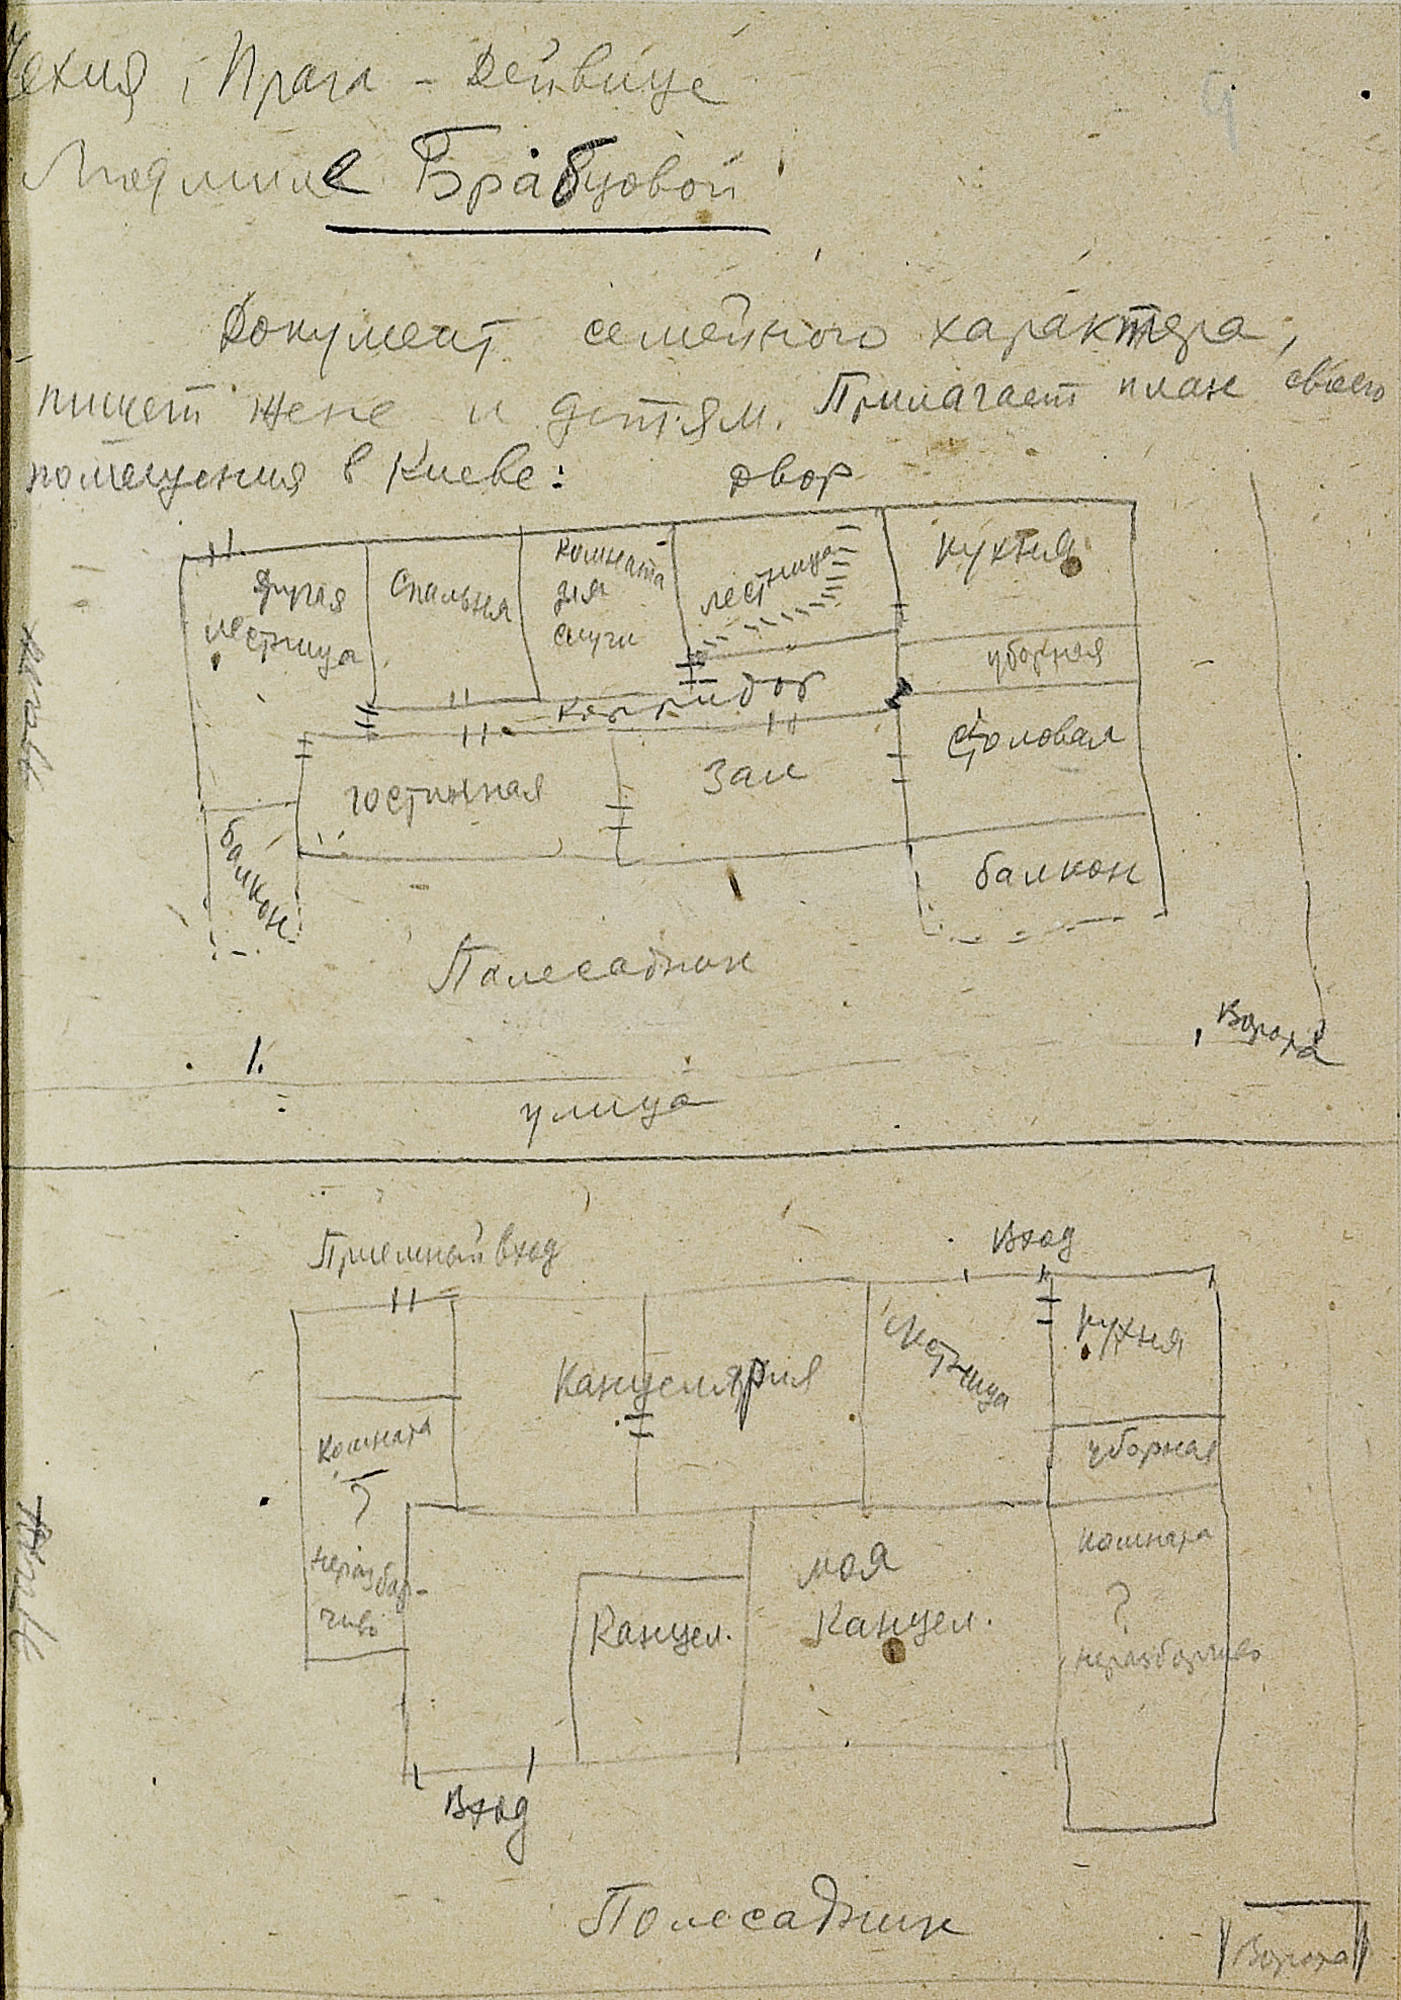 Чехия, Прага - Дейвице
Людмиле Брабцовой
Документ семейного характера,
пишет жене и детям. Прилагает план своего
помещения в Киеве:
двор
другая
лестница
спальня
комната
для
слуги
лестница
кухня
уборная
корридор
столовая
гостинная
зал
балкон
балкон
Палесадник
Ворота
1.
улица
Приемный вход
Вход
Канцелярия
лестница
кухня
уборная
комната
?
неразбор-
чиво
Канцел.
моя
Канцел.
комната
?
неразборчиво
Вход
Полесадник
Ворота